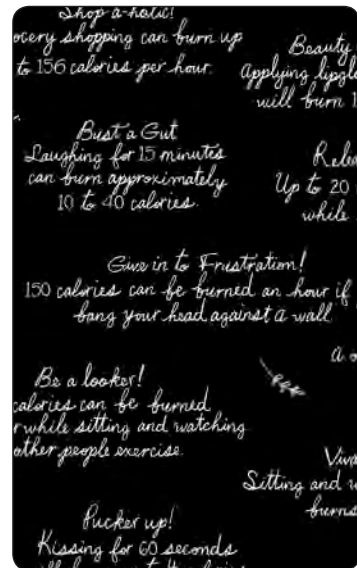 Shop a-holic!
ocery shopping can burn up
to 156 calories per hour.
Beauty
applying lipgl
will burn 1
Bust a Gut
Laughing for 15 minutes
can burn approximately
10 to 40 calories.
Relea
Up to 20
while
Give in to Frustration!
150 calories can be burned an hour if
bang your head against a wall
a
Be a looker!
calories can be burned
r while sitting and watching
other people exercise.
Viva
Sitting and w
burns
Pucker up!
Kissing for 60 seconds